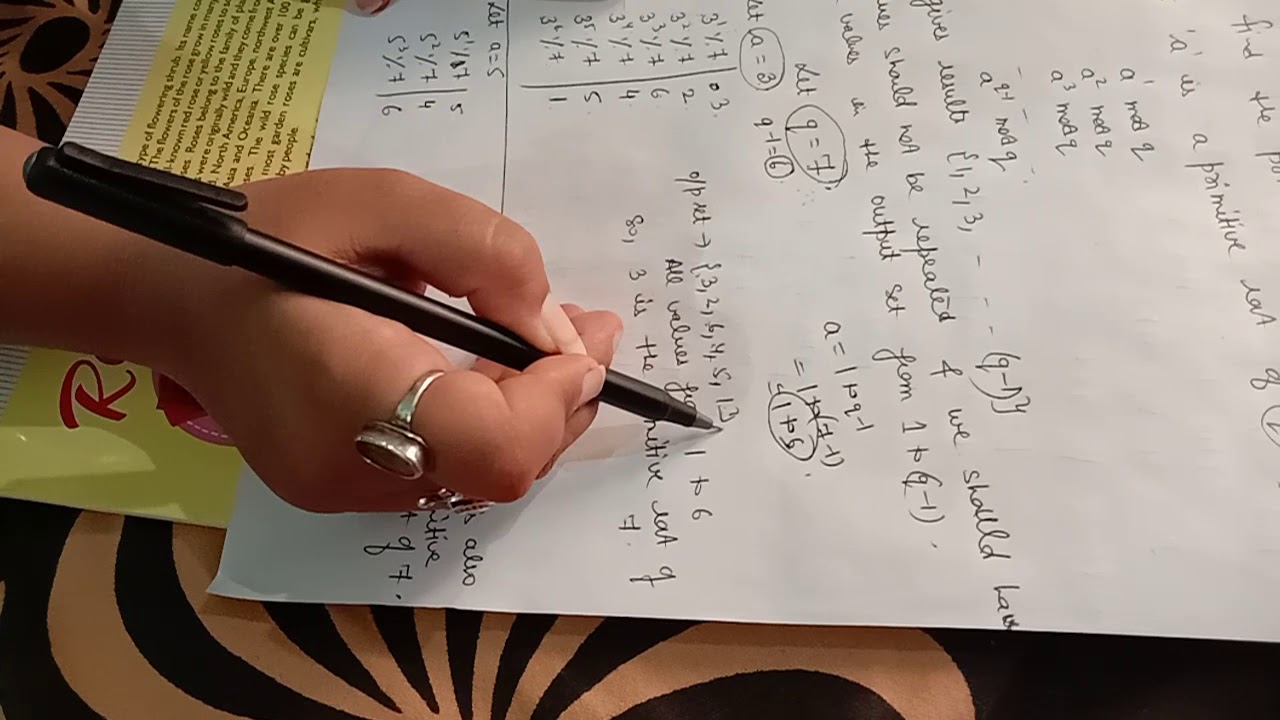 find the
'a' is a primitive root of
a¹ mod q
a² mod q
a³ mod q
a^q-1 mod q
gives results {1, 2, 3, - - - (q-1)}
values should not be repeated & we should have
values in the output set from 1 to (q-1).
Let q = 7
a = 1 to q-1
= 1 to (7-1)
= 1 to 6.
Let a = 3 q-1 = 6
3¹ % 7 3.
3² % 7 2
3³ % 7 6
3⁴ % 7 4
3⁵ % 7 5
3⁶ % 7 1
o/p set → {3, 2, 6, 4, 5, 1}
All values 1 to 6
so, 3 is the root of
7.
Let a = 5
5¹ % 7 5
5² % 7 4
5³ % 7 6
also
of 7.
type of flowering shrub. Its name
The flowers of the rose grow in many
known red rose or yellow roses
Roses belong to the family of
were originally wild and they come from
North America, Europe, northwest
Asia and Oceania. There are over 100
The wild rose species can be
most garden roses are cultivars,
by people.